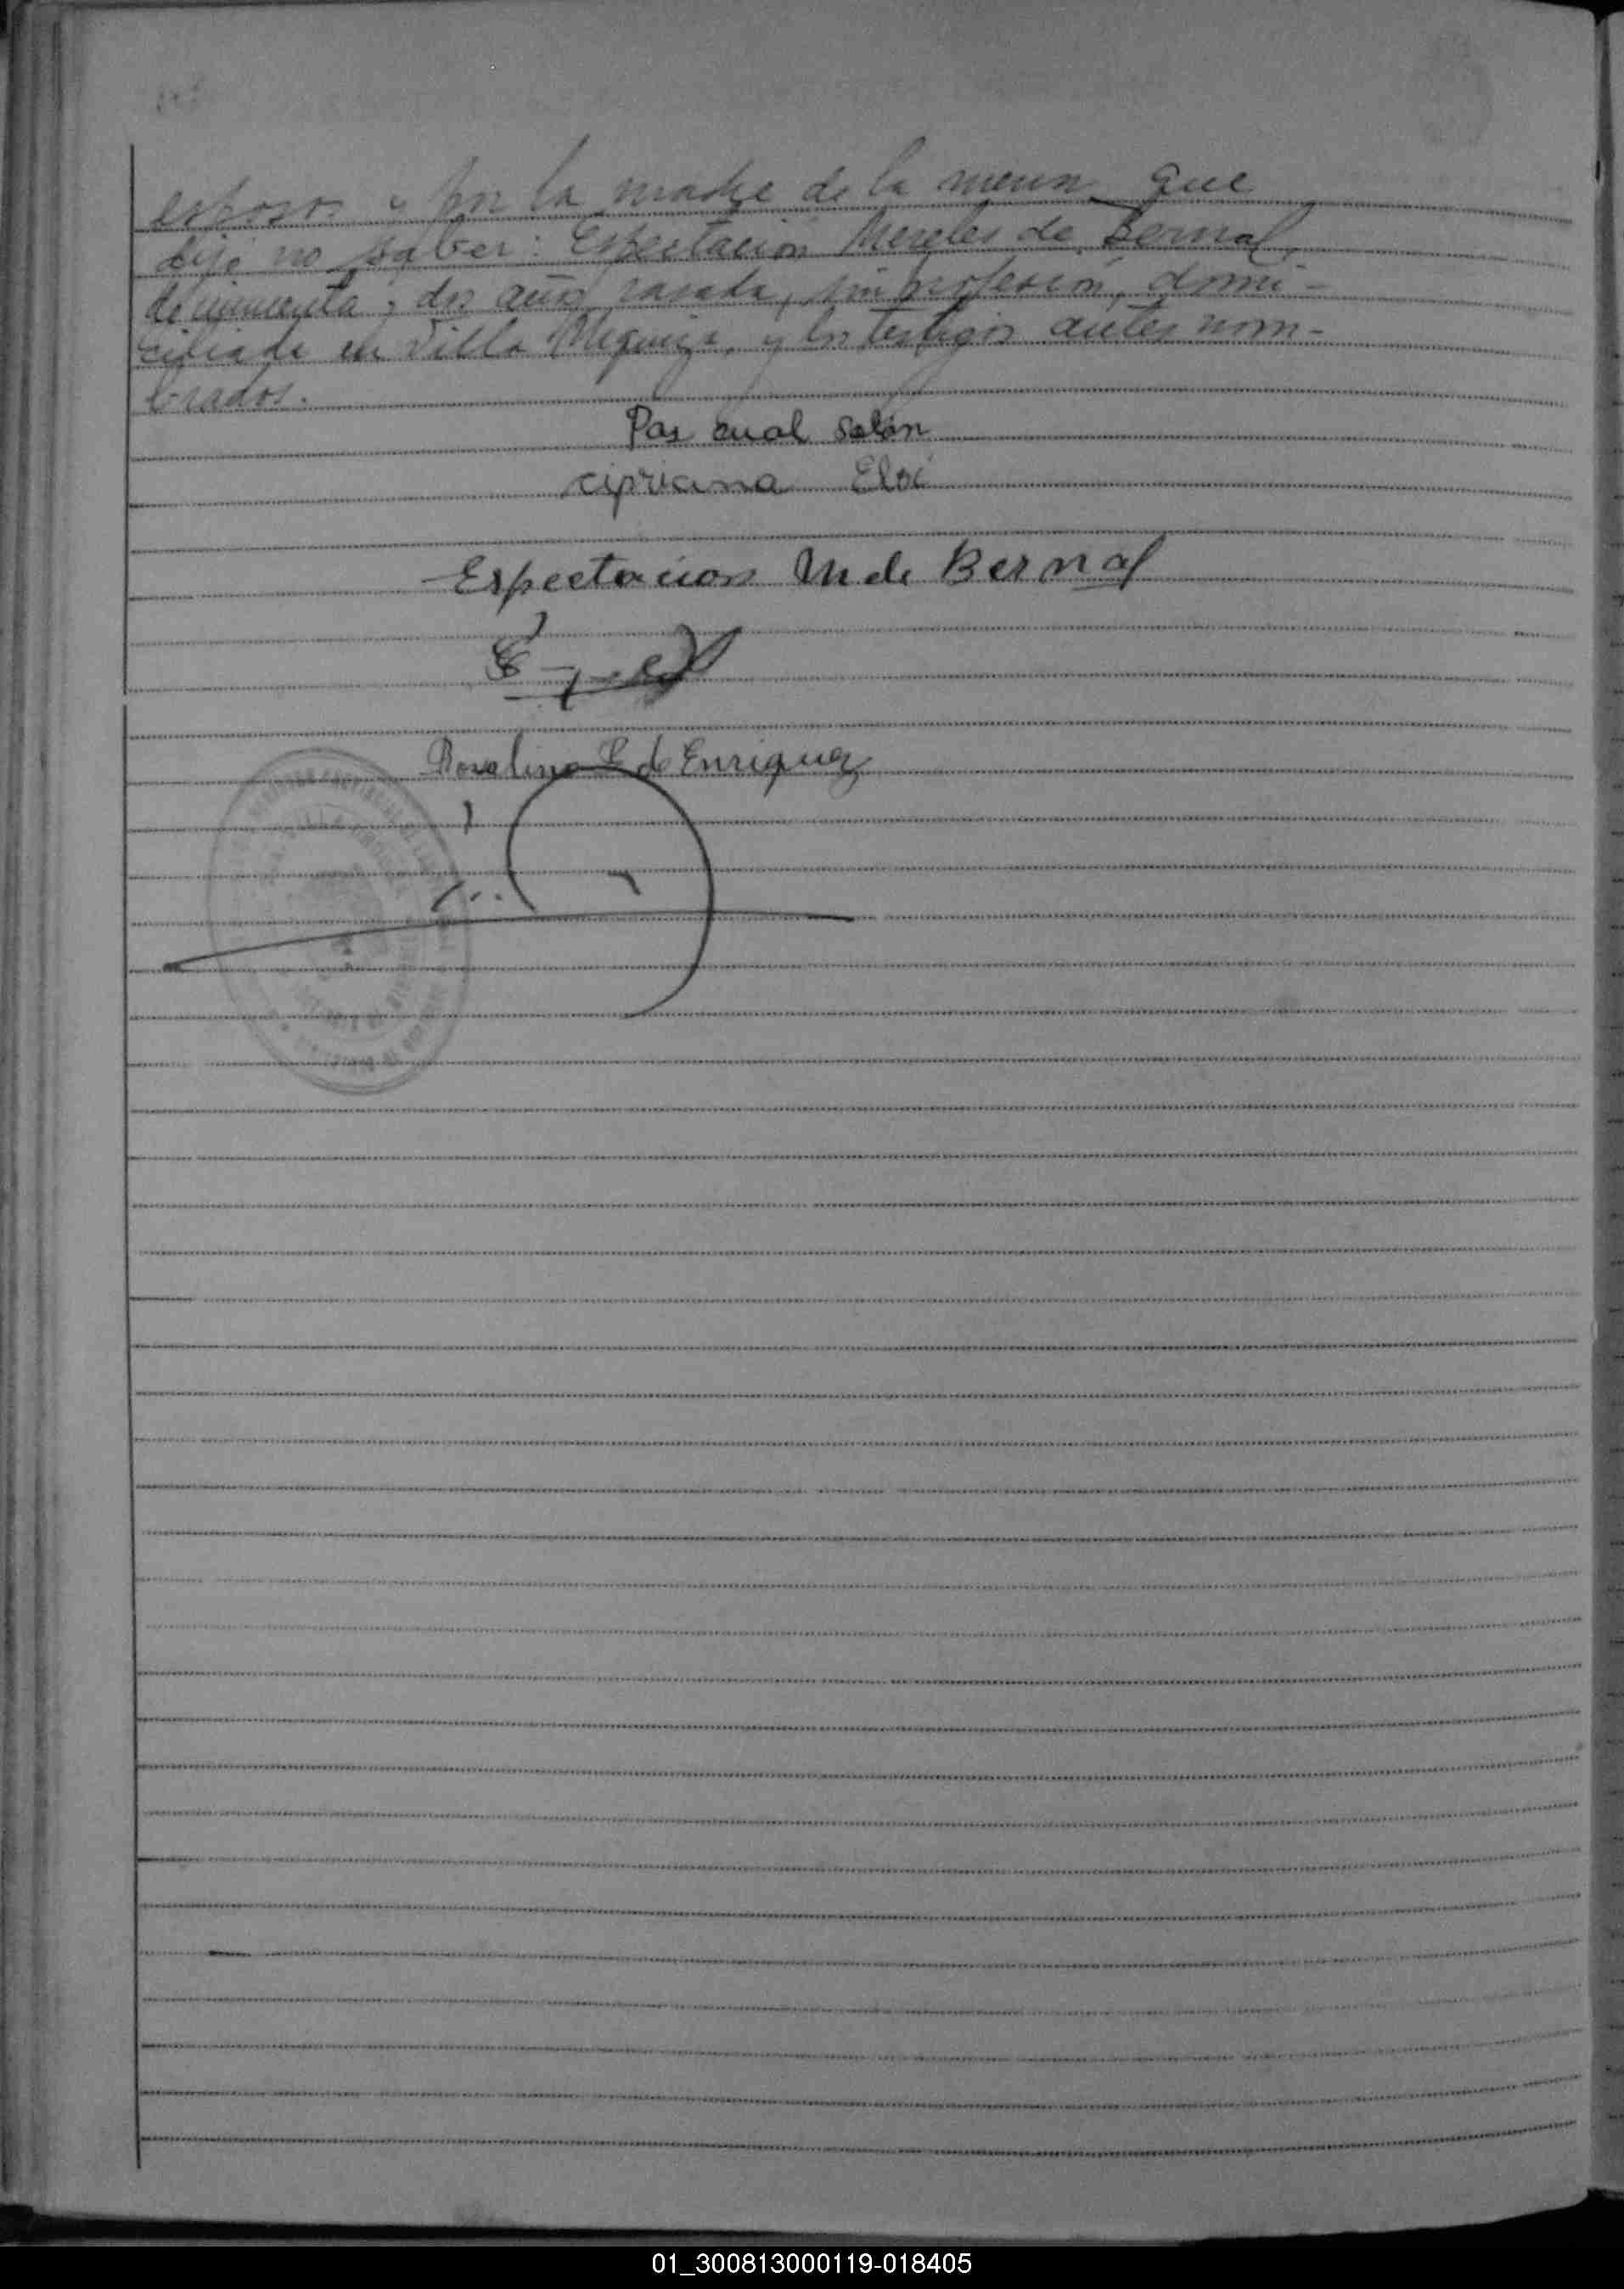 esposo y por la madre de la menor que
dijo no saber: Espectación Mereles de Bernal,
de cincuenta y dos años, casada, sin profesión, domi-
ciliada en Villa Urquiza, y los testigos antes nom-
brados.
Pas cual Solán
cipriana Eloi
Espectacion M de Bernal
Rosalina E de Enriquez
01_300813000119-018405